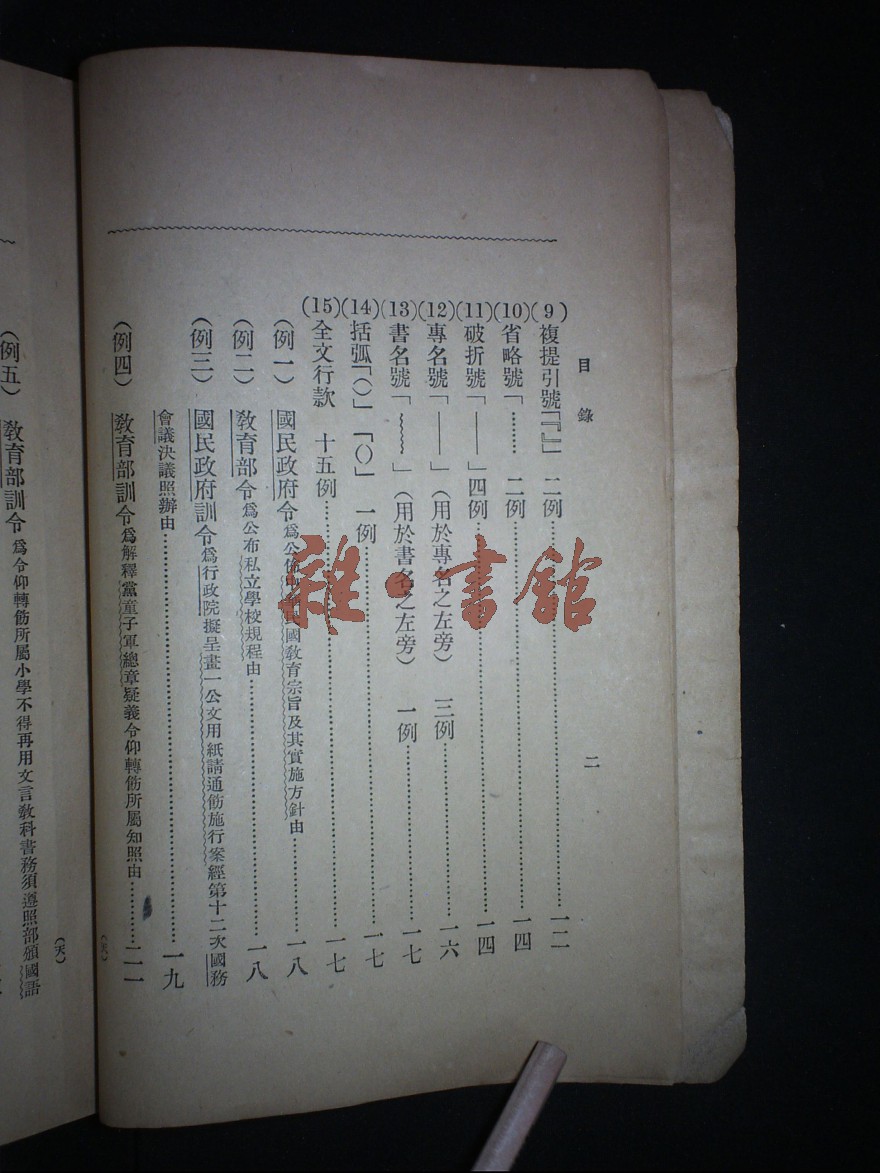 目錄 二
(9)複提引號「『』」 二例……一二
(10)省略號「……」 二例……一四
(11)破折號「——」 四例……一四
(12)專名號「——」(用於專名之左旁) 三例……一六
(13)書名號「﹏﹏」(用於書名之左旁) 一例……一七
(14)括弧「()」「〔〕」 一例……一七
(15)全文行款 十五例……一七
(例一)國民政府令為公佈中華民國教育宗旨及其實施方針由……一八
(例二)教育部令為公布私立學校規程由……一八
(例三)國民政府訓令為行政院擬呈畫一公文用紙請通飭施行案經第十二次國務
會議決議照辦由……一九
(例四)教育部訓令為解釋黨童子軍總章疑義令仰轉飭所屬知照由……二一
(例五)教育部訓令為令仰轉飭所屬小學不得再用文言教科書務須遵照部頒國語
(天)
雜·書館